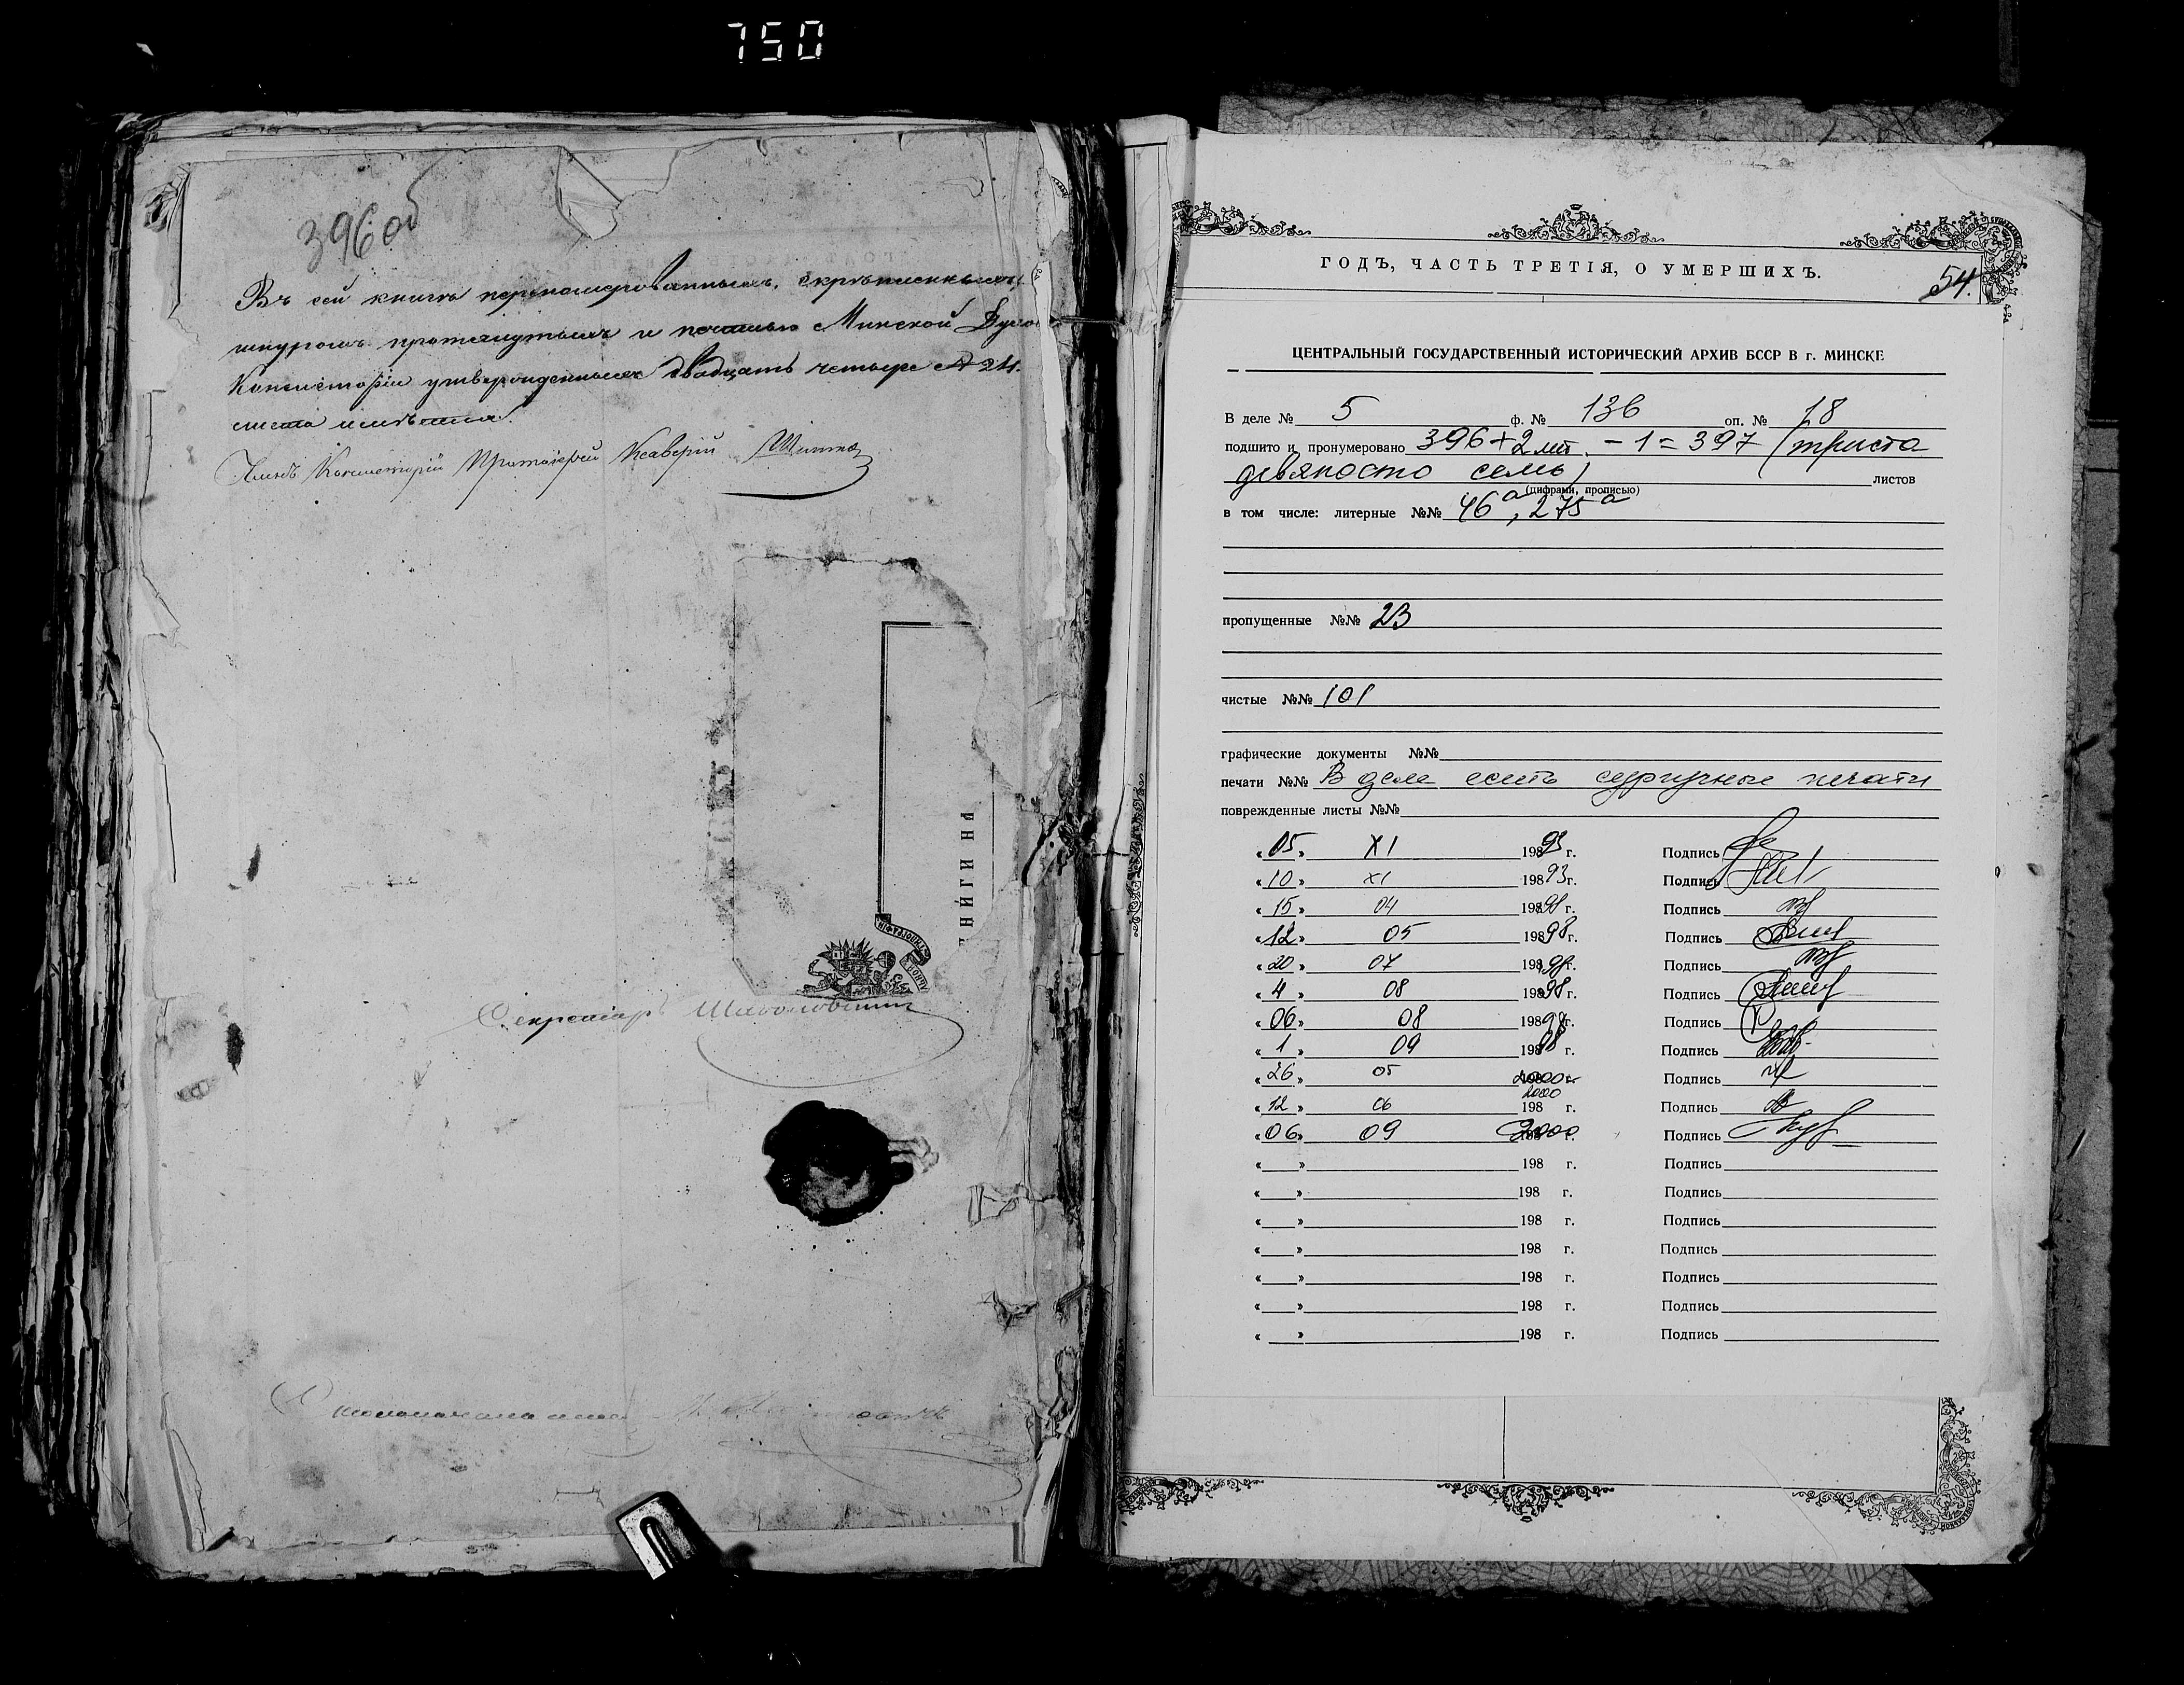 750
396 об
Въ сей книгѣ перенумерованныхъ, скрѣпленныхъ,
шнуромъ протянутыхъ и печатью Минской Духо
Консисторіи утвержденныхъ двадцать четыре № 24.
листа имѣется.
Членъ Консисторіи Протоіерей Ксаверій
НИГИ НА
Секретарь
Столоначальникъ
ГОДЪ, ЧАСТЬ ТРЕТІЯ, О УМЕРШИХЪ.
54.
ЦЕНТРАЛЬНЫЙ ГОСУДАРСТВЕННЫЙ ИСТОРИЧЕСКИЙ АРХИВ БССР В г. МИНСКЕ
В деле № 5 ф. № 136 оп. № 18
подшито и пронумеровано 396+2 лит. -1=397 (триста
девяносто семь) листов
(цифрами, прописью)
в том числе: литерные №№ 46а, 275а
пропущенные №№ 23
чистые №№ 101
графические документы №№
печати №№ В деле есть сургучные печати
поврежденные листы №№
«05» XI 19893 г. Подпись
«10» XI 19893 г. Подпись
«15» 04 19898 г. Подпись
«12» 05 19898 г. Подпись
«20» 07 19898 г. Подпись
«4» 08 19898 г. Подпись
«06» 08 19898 г. Подпись
«1» 09 19898 г. Подпись
«26» 05 2000 г. Подпись
2000
«12» 06 198 г. Подпись
«06» 09 2000 г. Подпись
« » 198 г. Подпись
« » 198 г. Подпись
« » 198 г. Подпись
« » 198 г. Подпись
« » 198 г. Подпись
« » 198 г. Подпись
« » 198 г. Подпись